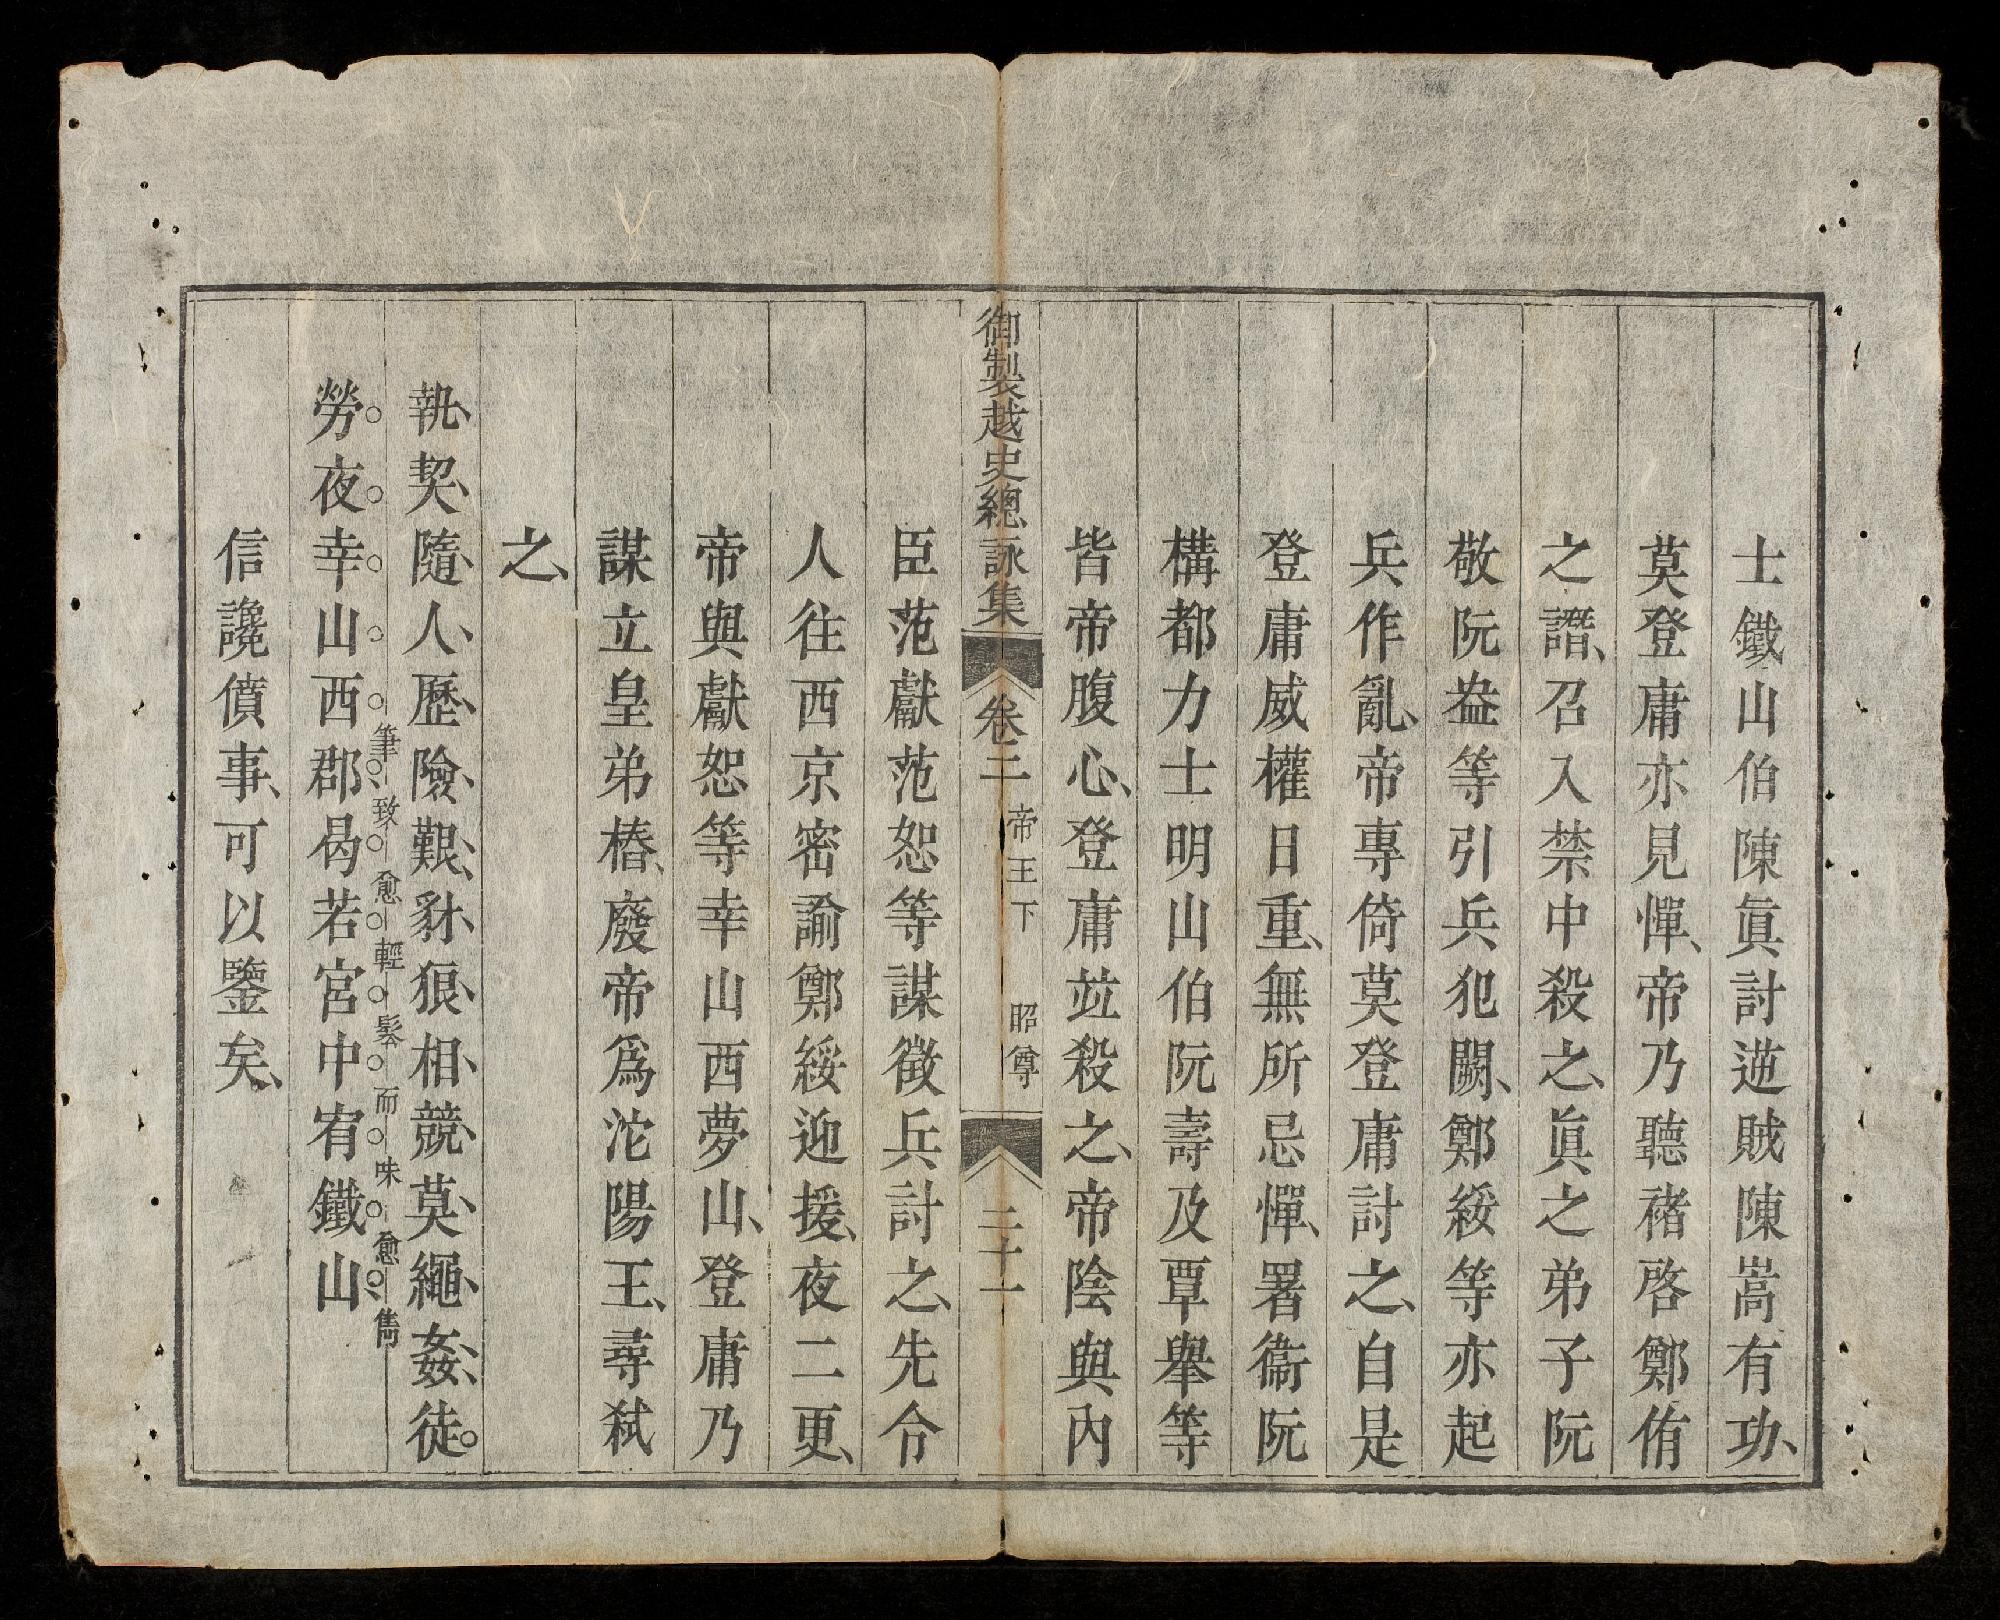 士鐵山伯陳眞討逆賊陳嵩有功、
莫登庸亦見憚、帝乃聽褚啓鄭侑
之譖、召入禁中殺之、眞之弟子阮
敬阮盎等引兵犯闕、鄭綏等亦起
兵作亂、帝專倚莫登庸討之、自是
登庸威權日重、無所忌憚、署衞阮
構都力士明山伯阮壽及覃舉等
皆帝腹心、登庸竝殺之、帝陰與內
御製越史總詠集 卷二 帝王下 昭尊 二十一
臣范獻范恕等謀徵兵討之、先令
人往西京密諭鄭綏迎援、夜二更、
帝與獻恕等幸山西夢山、登庸乃
謀立皇弟椿、廢帝爲沱陽王、尋弒
之、
執契隨人歷險艱、豺狼相競莫繩姦徒。
勞夜幸山西郡曷若宮中宥鐵山
筆致愈輕鬆而味愈雋
信讒僨事、可以鑒矣、